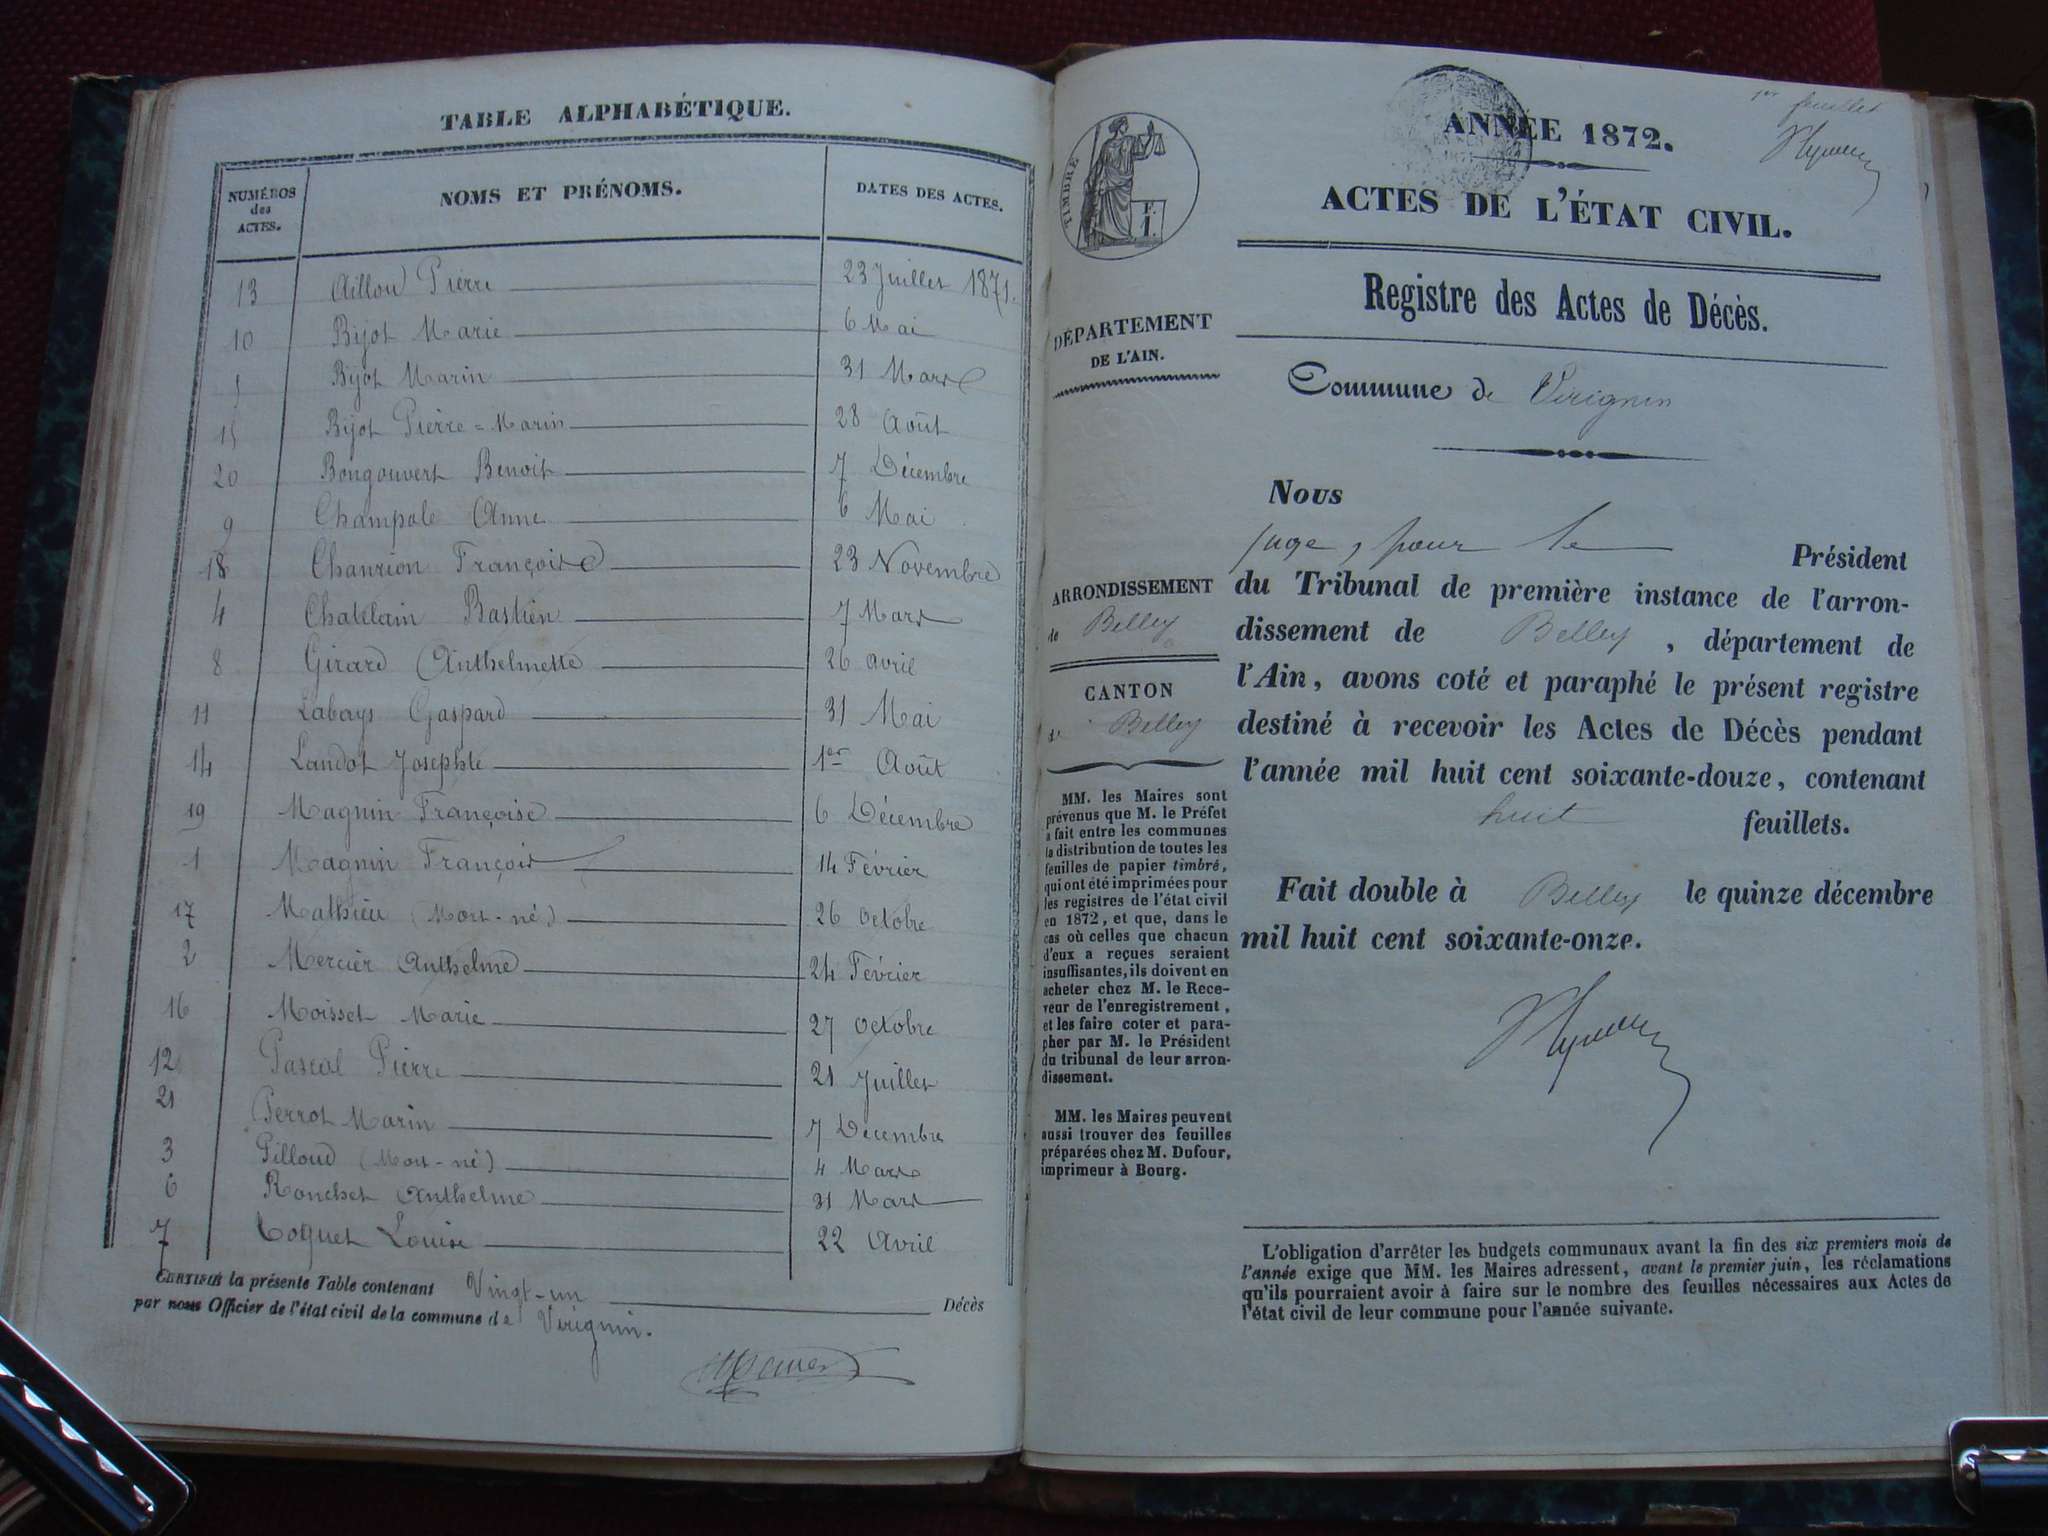 TABLE ALPHABÉTIQUE.
NUMÉROS des ACTES. NOMS ET PRÉNOMS. DATES DES ACTES.
13 Aillou Pierre 23 Juillet 1871.
10 Bijot Marie 6 Mai
5 Bijot Marin 31 Mars
15 Bijot Pierre=Marin 28 Août
20 Bongouvert Benoit 7 Décembre
9 Champole Anne 6 Mai
18 Chanrion Françoise 23 Novembre
4 Chatelain Bastien 7 Mars
8 Girard Anthelmette 26 avril
11 Labays Gaspard 31 Mai
14 Landot Josephte 1er Août
19 Magnin Françoise 6 Décembre
1 Magnin François 14 Février
17 Mathieu (Mort-né) 26 octobre
2 Mercier Anthelme 24 Février
16 Moisset Marie 27 octobre
12 Pascal Pierre 21 Juillet
21 Perrot Marin 7 Décembre
3 Pilloud (Mort-né) 4 Mars
6 Ronchet Anthelme 31 Mars
7 Toquet Louise 22 Avril
CERTIFIÉ la présente Table contenant Vingt-un Décès
par nous Officier de l'état civil de la commune de Virignin.
1er feuillet
ANNÉE 1872.
ACTES DE L'ÉTAT CIVIL.
TIMBRE
F.
I.
Registre des Actes de Décès.
DÉPARTEMENT
DE L'AIN.
Commune de Virignin
Nous
juge, pour le Président
du Tribunal de première instance de l'arron-
dissement de Belley, département de
l'Ain, avons coté et paraphé le présent registre
destiné à recevoir les Actes de Décès pendant
l'année mil huit cent soixante-douze, contenant
huit feuillets.
Fait double à Belley le quinze décembre
mil huit cent soixante-onze.
ARRONDISSEMENT
de Belley
CANTON
de Belley
MM. les Maires sont
prévenus que M. le Préfet
a fait entre les communes
la distribution de toutes les
feuilles de papier timbré,
qui ont été imprimées pour
les registres de l'état civil
en 1872, et que, dans le
cas où celles que chacun
d'eux a reçues seraient
insuffisantes, ils doivent en
acheter chez M. le Rece-
veur de l'enregistrement,
et les faire coter et para-
pher par M. le Président
du tribunal de leur arron-
dissement.
MM. les Maires peuvent
aussi trouver des feuilles
préparées chez M. Dufour,
imprimeur à Bourg.
L'obligation d'arrêter les budgets communaux avant la fin des six premiers mois de
l'année exige que MM. les Maires adressent, avant le premier juin, les réclamations
qu'ils pourraient avoir à faire sur le nombre des feuilles nécessaires aux Actes de
l'état civil de leur commune pour l'année suivante.